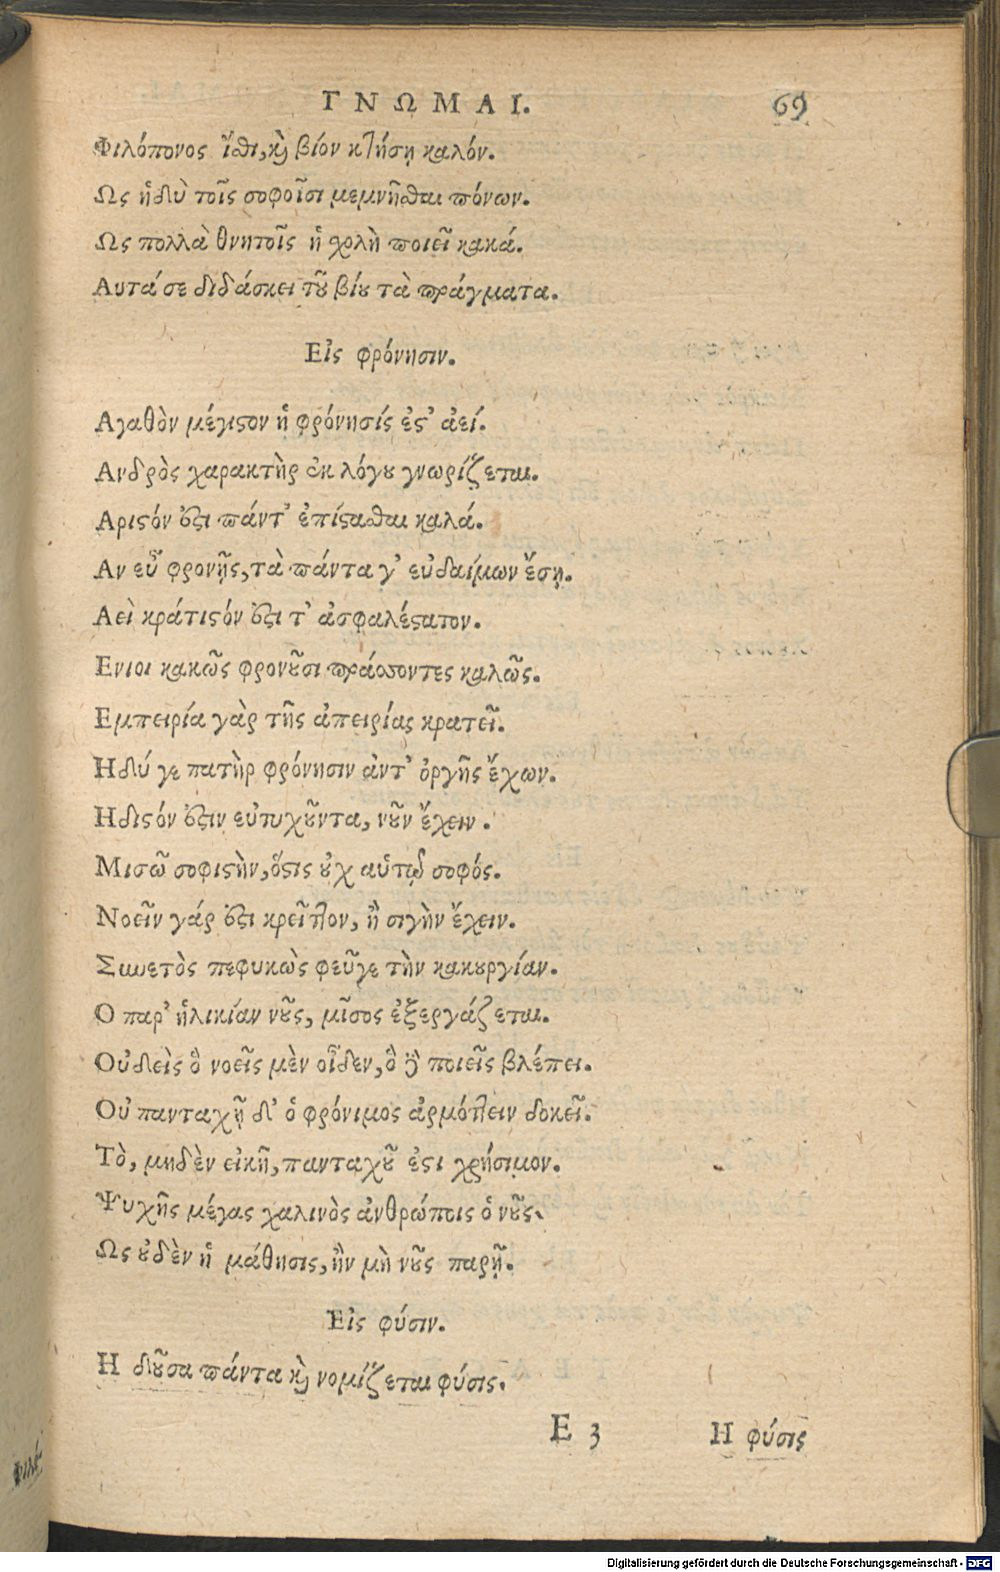 ΓΝΩΜΑΙ. 69
Φιλόπονος ἴσθι, καὶ βίον κτήσῃ καλόν.
Ως ἡδὺ τοῖς σοφοῖσι μεμνῆσθαι πόνων.
Ως πολλὰ θνητοῖς ἡ σχολὴ ποιεῖ κακά.
Αυτά σε διδάσκει τοῦ βίου τὰ πράγματα.
Εἰς φρόνησιν.
Αγαθὸν μέγιστον ἡ φρόνησίς ἐστ' ἀεί.
Ανδρὸς χαρακτὴρ ἐκ λόγου γνωρίζεται.
Αριστόν ἐστι πάντ' ἐπίστασθαι καλά.
Αν εὖ φρονῇς, τὰ πάντα γ' εὐδαίμων ἔσῃ.
Αεὶ κράτιστόν ἐστι τ' ἀσφαλέστατον.
Ενιοι κακῶς φρονοῦσι πράσσοντες καλῶς.
Εμπειρία γὰρ τῆς ἀπειρίας κρατεῖ.
Ηδύ γε πατὴρ φρόνησιν ἀντ' ὀργῆς ἔχων.
Ηδιστόν ἐστιν εὐτυχοῦντα, νοῦν ἔχειν.
Μισῶ σοφιστὴν, ὅστις οὐχ αὑτῷ σοφός.
Νοεῖν γάρ ἐστι κρεῖττον, ἢ σιγὴν ἔχειν.
Συνετὸς πεφυκὼς φεῦγε τὴν κακουργίαν.
Ο παρ' ἡλικίαν νοῦς, μῖσος ἐξεργάζεται.
Οὐδεὶς ὃ νοεῖς μὲν οἶδεν, ὃ δὲ ποιεῖς βλέπει.
Οὐ πανταχῇ δ' ὁ φρόνιμος ἁρμόττειν δοκεῖ.
Τὸ, μηδὲν εἰκῆ, πανταχοῦ ἐστι χρήσιμον.
Ψυχῆς μέγας χαλινὸς ἀνθρώποις ὁ νοῦς.
Ως οὐδὲν ἡ μάθησις, ἢν μὴ νοῦς παρῇ.
Εἰς φύσιν.
Η δύουσα πάντα καὶ νομίζεται φύσις.
E 3 Η φύσις
Digitalisierung gefördert durch die Deutsche Forschungsgemeinschaft - DFG